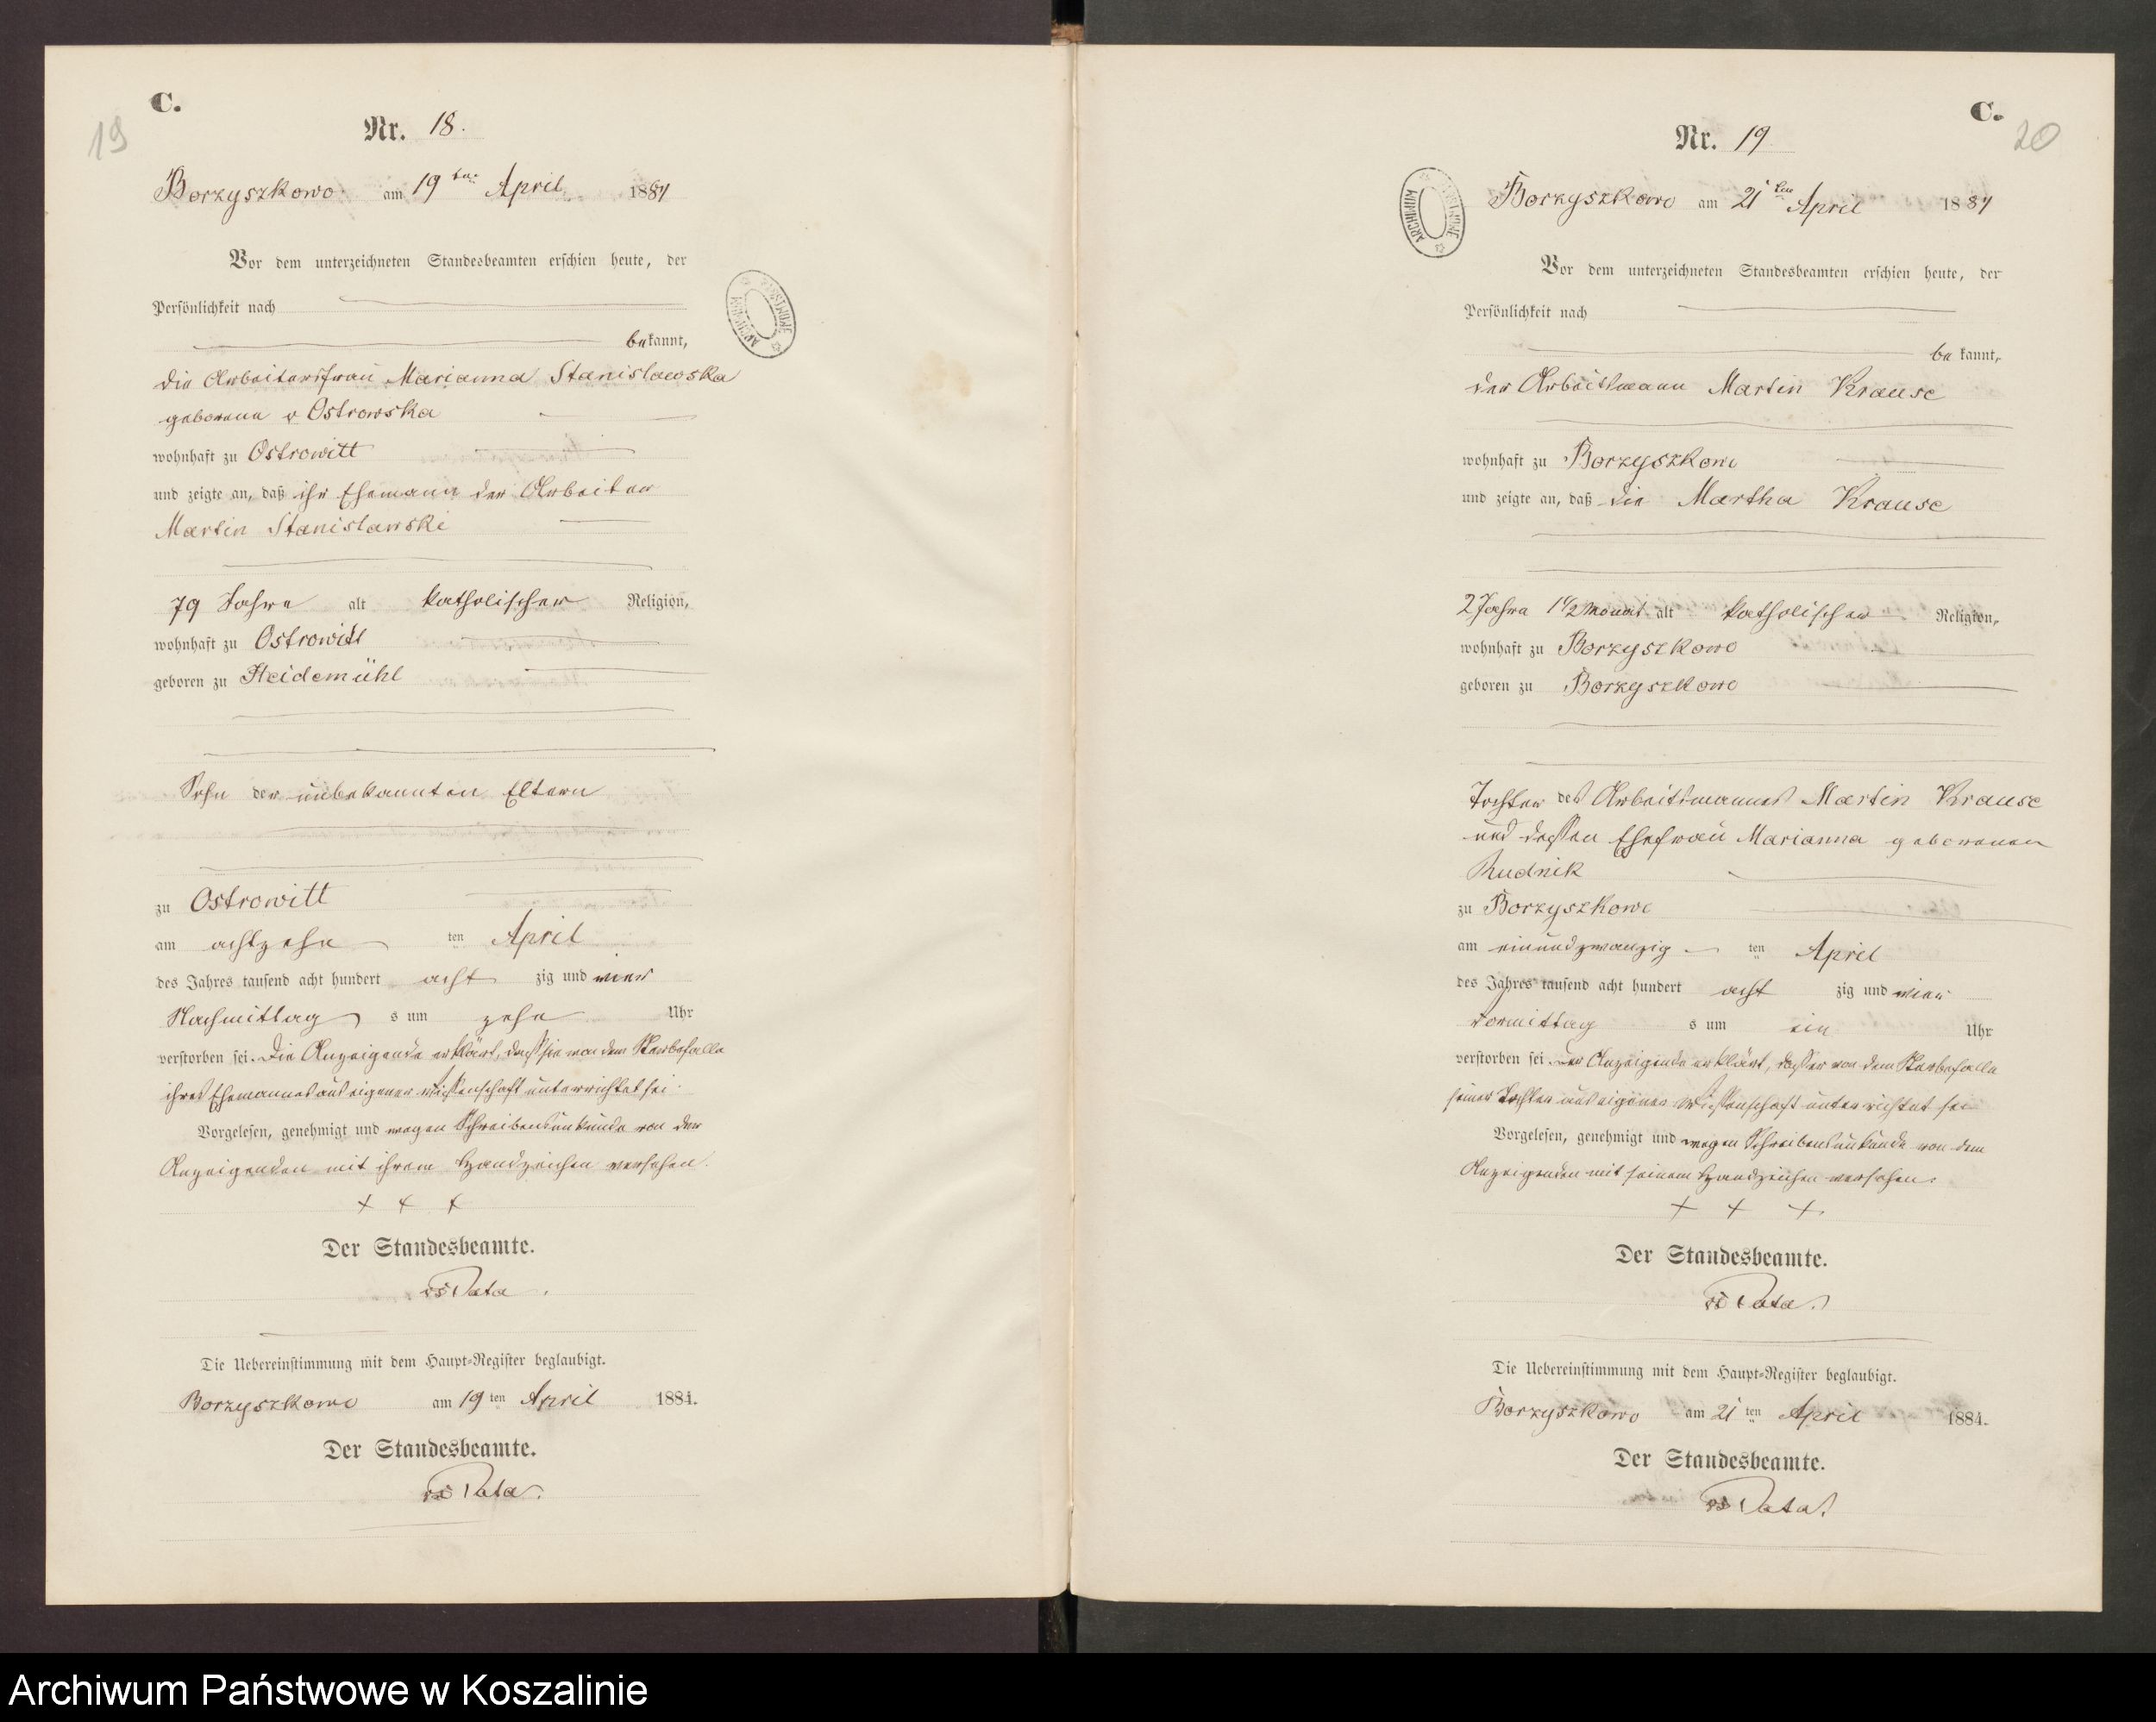 C.
19
Nr. 18.
Borzyszkowo am 19ten April 1884
Vor dem unterzeichneten Standesbeamten erschien heute, der
Persönlichkeit nach
bekannt,
die Arbeiterfrau Marianna Stanislawska
geborene v Ostrowska
wohnhaft zu Ostrowitt
und zeigte an, daß ihr Ehemann der Arbeiter
Martin Stanislawski
79 Jahre alt katholischer Religion,
wohnhaft zu Ostrowitt
geboren zu Heidemühl
Sohn der unbekannten Eltern
zu Ostrowitt
am achtzehn ten April
des Jahres tausend acht hundert acht zig und vier
Nachmittag s um zehn Uhr
verstorben sei. Die Anzeigende erklärt, daß sie von dem Sterbefalle
ihres Ehemannes aus eigener Wissenschaft unterrichtet sei.
Vorgelesen, genehmigt und wegen Schreibensunkunde von der
Anzeigenden mit ihrem Handzeichen versehen.
+ + +
Der Standesbeamte.
Die Uebereinstimmung mit dem Haupt-Register beglaubigt.
Borzyszkowo am 19 ten April 1884.
Der Standesbeamte.
C.
20
Nr. 19
ARCHIWUM PAŃSTWOWE
Borzyszkowo am 21ten April 1884
Vor dem unterzeichneten Standesbeamten erschien heute, der
Persönlichkeit nach
bekannt,
der Arbeitsmann Martin Krause
wohnhaft zu Borzyszkowo
und zeigte an, daß die Martha Krause
2 Jahre 1 1/2 Monat alt katholischer Religion,
wohnhaft zu Borzyszkowo
geboren zu Borzyszkowo
Tochter des Arbeitsmannes Martin Krause
und dessen Ehefrau Marianna geborenen
Rudnik
zu Borzyszkowo
am einundzwanzig ten April
des Jahres tausend acht hundert acht zig und vier
Vormittag s um ein Uhr
verstorben sei. Der Anzeigende erklärt, daß er von dem Sterbefalle
seiner Tochter aus eigener Wissenschaft unterrichtet sei
Vorgelesen, genehmigt und wegen Schreibensunkunde von dem
Anzeigenden mit seinem Handzeichen versehen.
+ + +
Der Standesbeamte.
Die Uebereinstimmung mit dem Haupt-Register beglaubigt.
Borzyszkowo am 21 ten April 1884.
Der Standesbeamte.
Archiwum Państwowe w Koszalinie